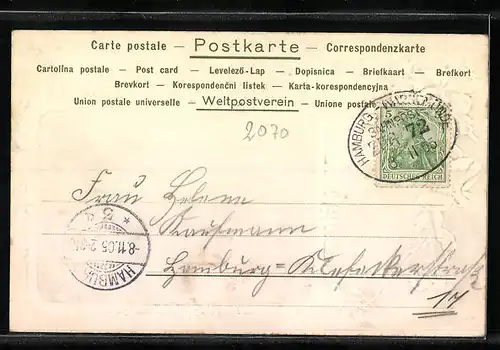 Carte postale — Postkarte — Correspondenzkarte
Cartolina postale — Post card — Levelező-Lap — Dopisnica — Briefkaart — Brefkort
Brevkort — Korespondenční listek — Karta-korespondencyjna
Union postale universelle — Weltpostverein — Unione postale
2070
HAMBURG
DEUTSCHES REICH
Frau Helene
Kaufmann
Hamburg = Klosterstraße
17
HAMBURG
-8.11.05.